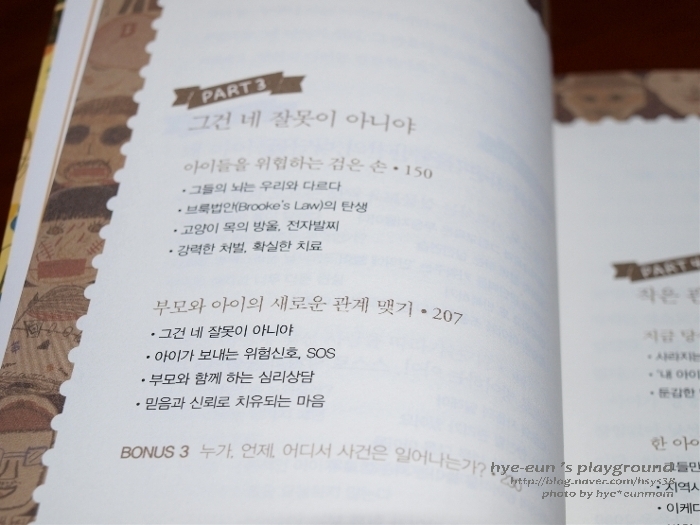 PART 3
그건 네 잘못이 아니야
아이들을 위협하는 검은 손 • 150
• 그들의 뇌는 우리와 다르다
• 브룩법안(Brooke's Law)의 탄생
• 고양이 목의 방울, 전자발찌
• 강력한 처벌, 확실한 치료
부모와 아이의 새로운 관계 맺기 • 207
• 그건 네 잘못이 아니야
• 아이가 보내는 위험신호, SOS
• 부모와 함께 하는 심리상담
• 믿음과 신뢰로 치유되는 마음
BONUS 3 누가, 언제, 어디서 사건은 일어나는가?
PART 4
작은
지금
• 사라지는
• '내 아이
• 둔감한
한 아이
• 지역사
• 이케다
hye-eun 's playground
http://blog.naver.com/hsys38
photo by hye*eunmom